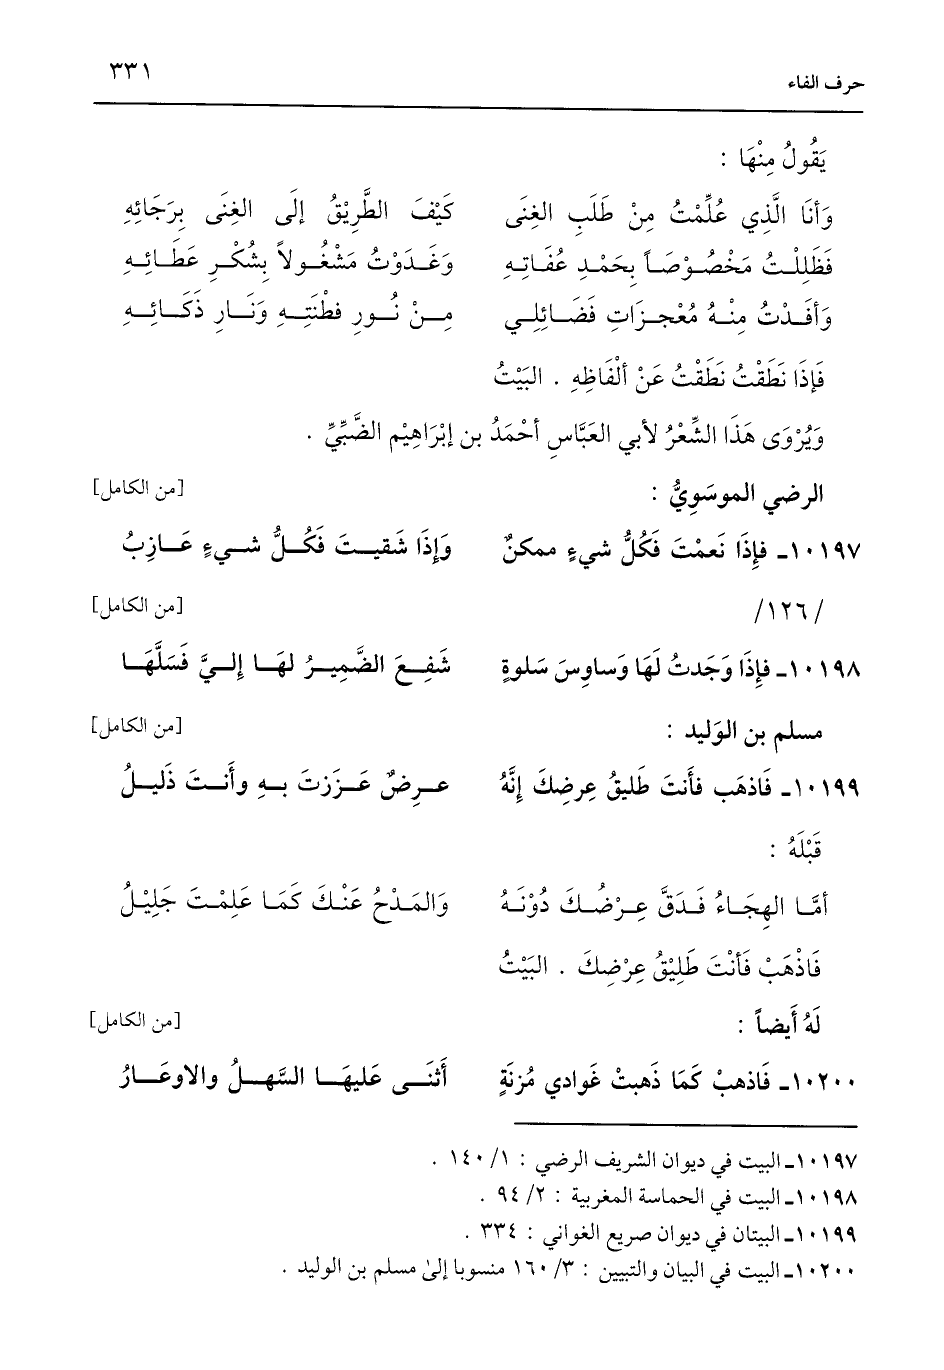 حرف الفاء ٣٣١
يَقُولُ مِنْهَا :
وَأنَا الَّذِي عُلِّمْتُ مِنْ طَلَبِ الغِنَى كَيْفَ الطَّرِيْقُ إلَى الغِنَى بِرَجَائِهِ
فَظَلِلْتُ مَخْصُوْصَاً بِحَمْدِ عُفَاتِهِ وَغَدَوْتُ مَشْغُولاً بِشُكْرِ عَطَائِهِ
وَأفَدْتُ مِنْهُ مُعْجِزَاتِ فَضَائِلِي مِنْ نُورِ فطْنَتِهِ وَنَارِ ذَكَائِهِ
فَإذَا نَطَقْتُ نَطَقْتُ عَنْ ألْفَاظِهِ . البَيْتُ
وَيُرْوَى هَذَا الشِّعْرُ لأبي العَبَّاسِ أحْمَدُ بن إبْرَاهِيْم الضَّبِّيِّ .
الرضي الموسَوِيُّ : [من الكامل]
١٠١٩٧ـ فإِذَا نَعمْتَ فَكُلُّ شيءٍ ممكنٌ وَإِذَا شَقيتَ فَكُلُّ شيءٍ عَازِبُ
/١٢٦/ [من الكامل]
١٠١٩٨ـ فإِذَا وَجَدتُ لَهَا وَساوِسَ سَلوةٍ شَفِعَ الضَّمِيرُ لهَا إِليَّ فَسَلَّهَا
مسلم بن الوَليد : [من الكامل]
١٠١٩٩ـ فَاذهَب فأَنتَ طَليقُ عِرضِكَ إِنَّهُ عرِضٌ عَزَزتَ بهِ وأَنتَ ذَليلُ
قَبْلَهُ :
أمَّا الهِجَاءُ فَدَقَّ عِرْضُكَ دُوْنَهُ وَالمَدْحُ عَنْكَ كَمَا عَلِمْتَ جَلِيْلُ
فَاذْهَبْ فَأنْتَ طَلِيْقُ عِرْضِكَ . البَيْتُ
لَهُ أَيضاً : [من الكامل]
١٠٢٠٠ـ فَاذهبْ كَمَا ذَهبتْ غَوادي مُزنَةٍ أَثنَى عَليهَا السَّهلُ والاوعَارُ
١٠١٩٧ـ البيت في ديوان الشريف الرضي : ١/ ١٤٠ .
١٠١٩٨ـ البيت في الحماسة المغربية : ٢/ ٩٤ .
١٠١٩٩ـ البيتان في ديوان صريع الغواني : ٣٣٤ .
١٠٢٠٠ـ البيت في البيان والتبيين : ٣/ ١٦٠ منسوبا إلىٰ مسلم بن الوليد .